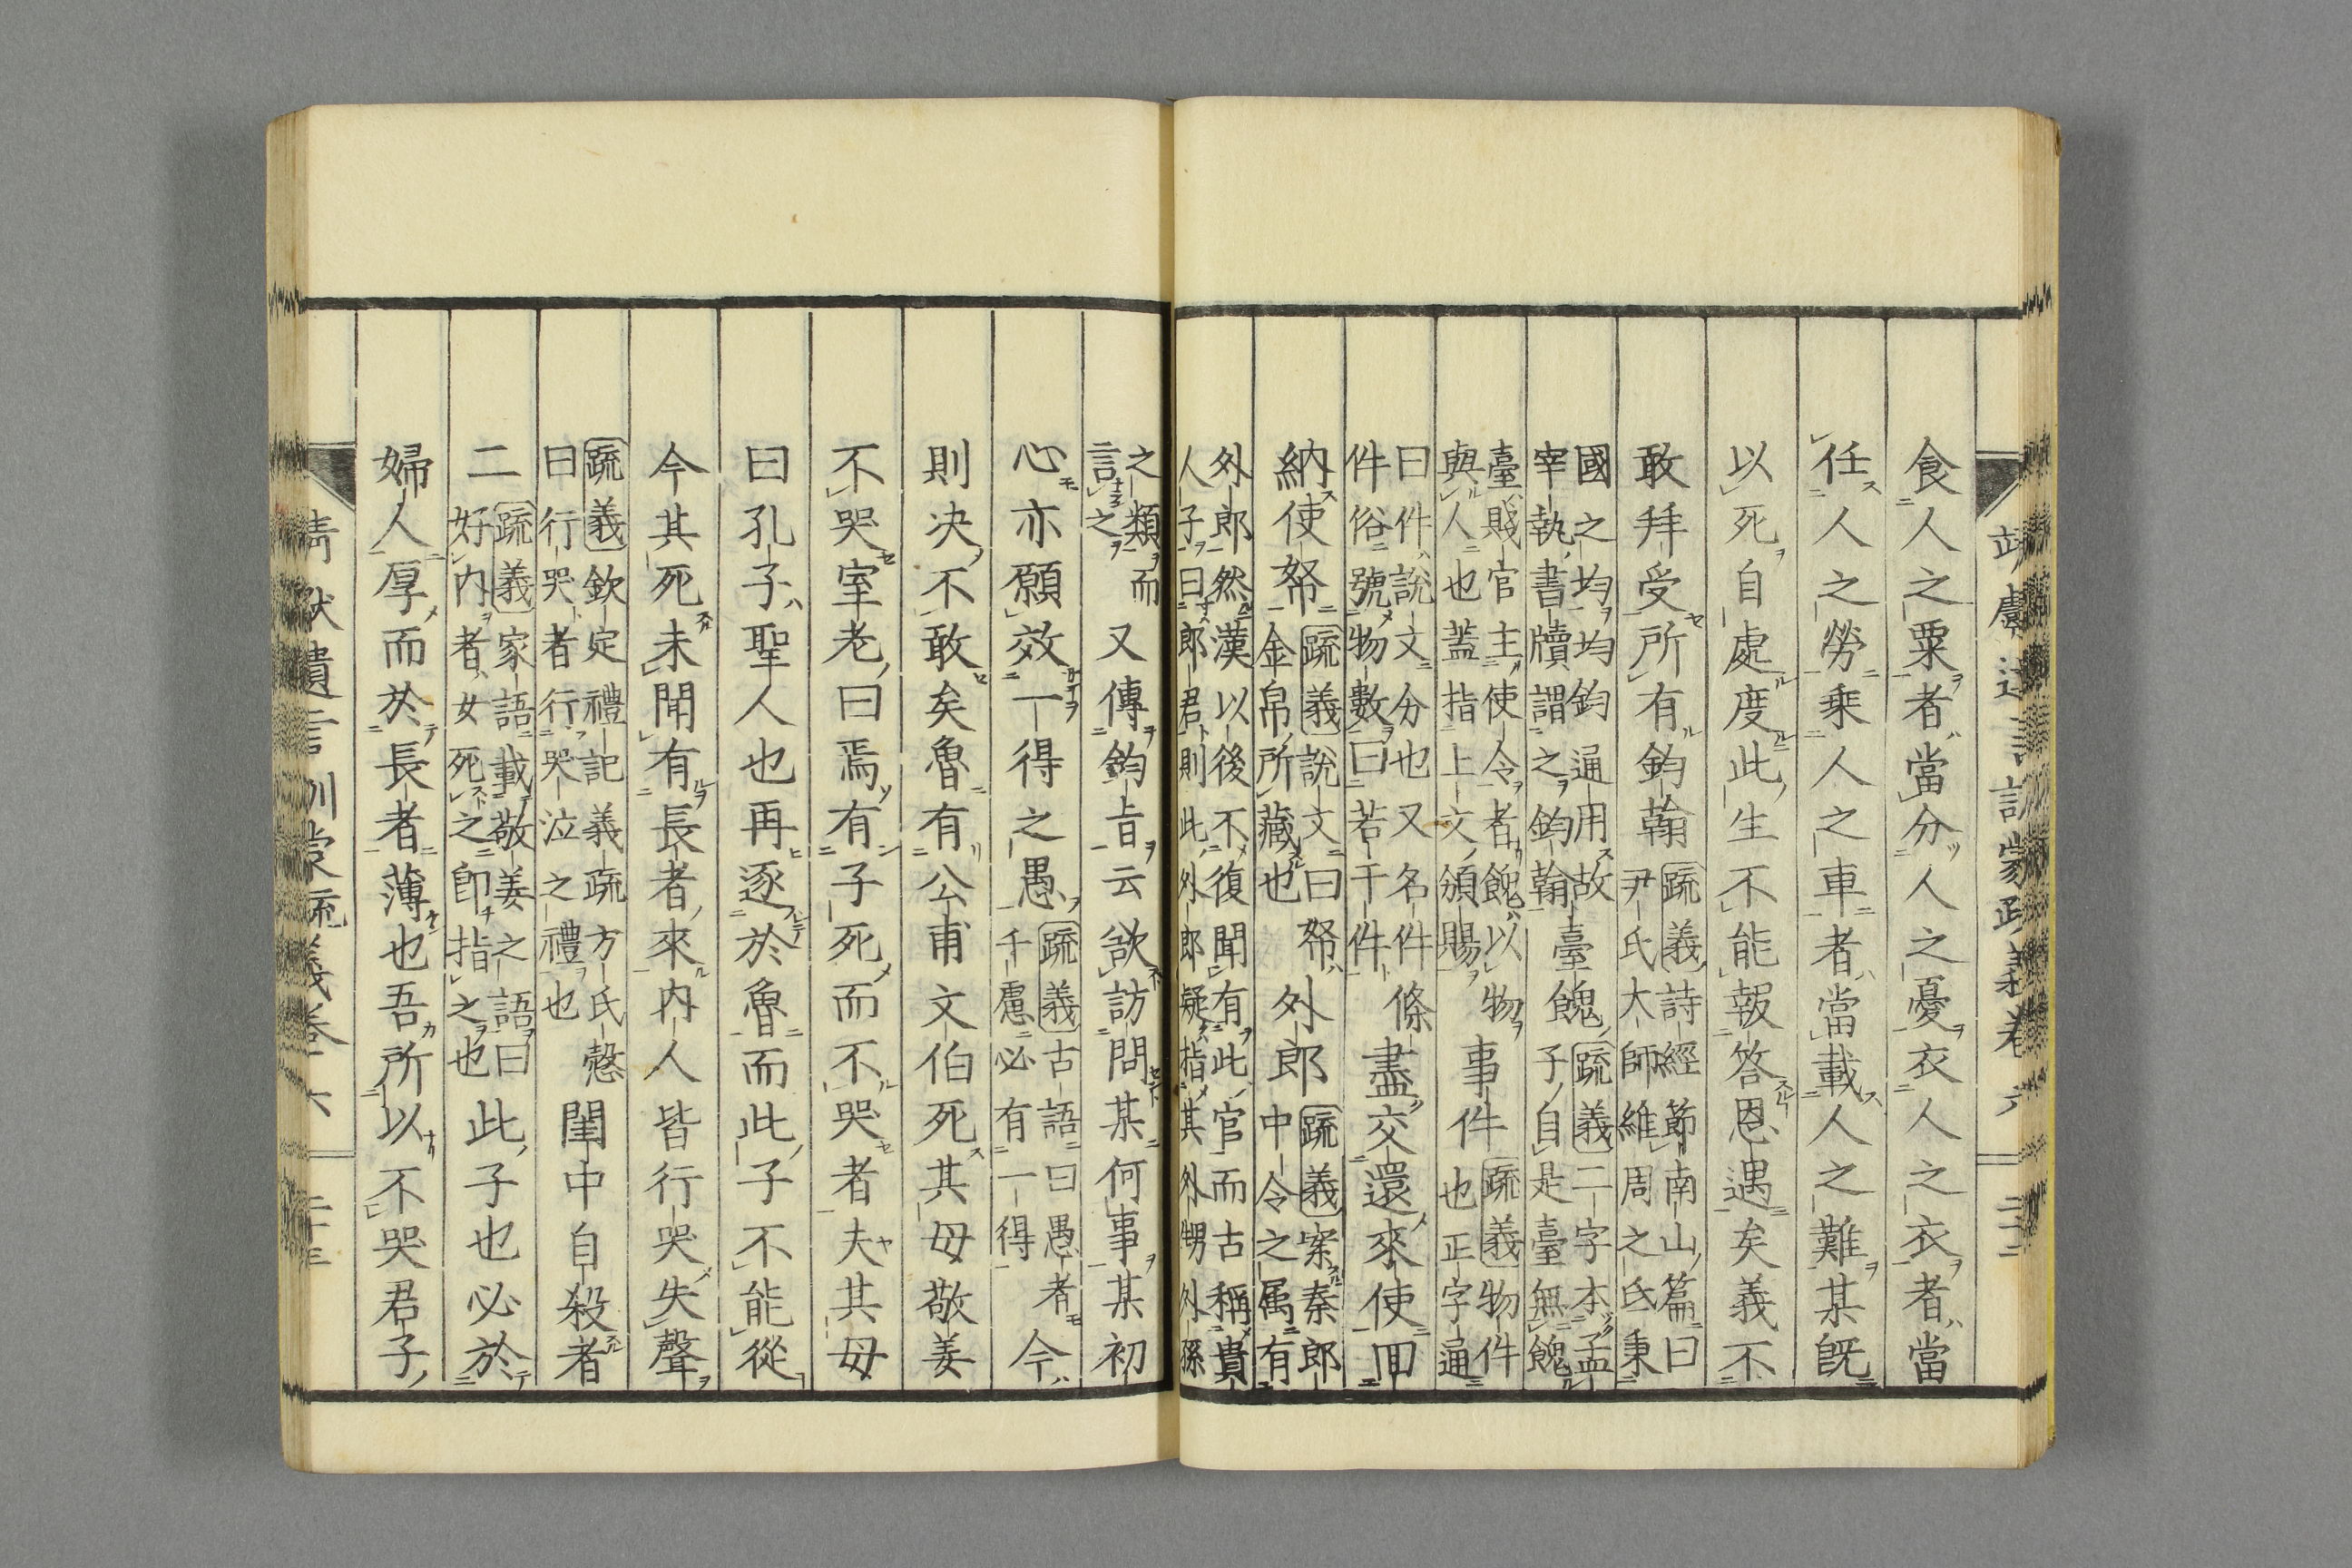 食人之粟者當分人之憂衣人之衣者當
任人之勞乘人之車者當載人之難某既
以死自處度此生不能報答恩遇矣義不
敢拜受所有鈞翰疏義詩經節南山篇曰
尹氏大師維周之氐秉
國之均均鈞通用故
宰執書牘謂之鈞翰臺餽疏義二字本孟
子自是臺無餽
臺賤官主使令者餽以物
與人也蓋指上文頒賜事件疏義物件
也正字通
曰件說文分也又名件條
件俗號物數曰若干件盡交還來使回
納使帑疏義說文曰帑
金帛所藏也外郎疏義案秦郎
中令之属有
外郎然漢以後不復聞有此官而古稱貴
人子曰郎君則此外郎疑指其外甥外孫
之類而
言之又傳鈞旨云欲訪問某何事某初
心亦願效一得之愚疏義古語曰愚者
千慮必有一得今
則决不敢矣魯有公甫文伯死其母敬姜
不哭室老曰焉有子死而不哭者夫其母
曰孔子聖人也再逐於魯而此子不能從
今其死未聞有長者來內人皆行哭失聲
疏義欽定禮記義疏方氏慤
曰行哭者行哭泣之禮也閨中自殺者
二疏義家語載敬姜之語曰
好內者女死之卽指之也此子也必於
婦人厚而於長者薄也吾所以不哭君子
靖獻遺言訓蒙疏義卷六